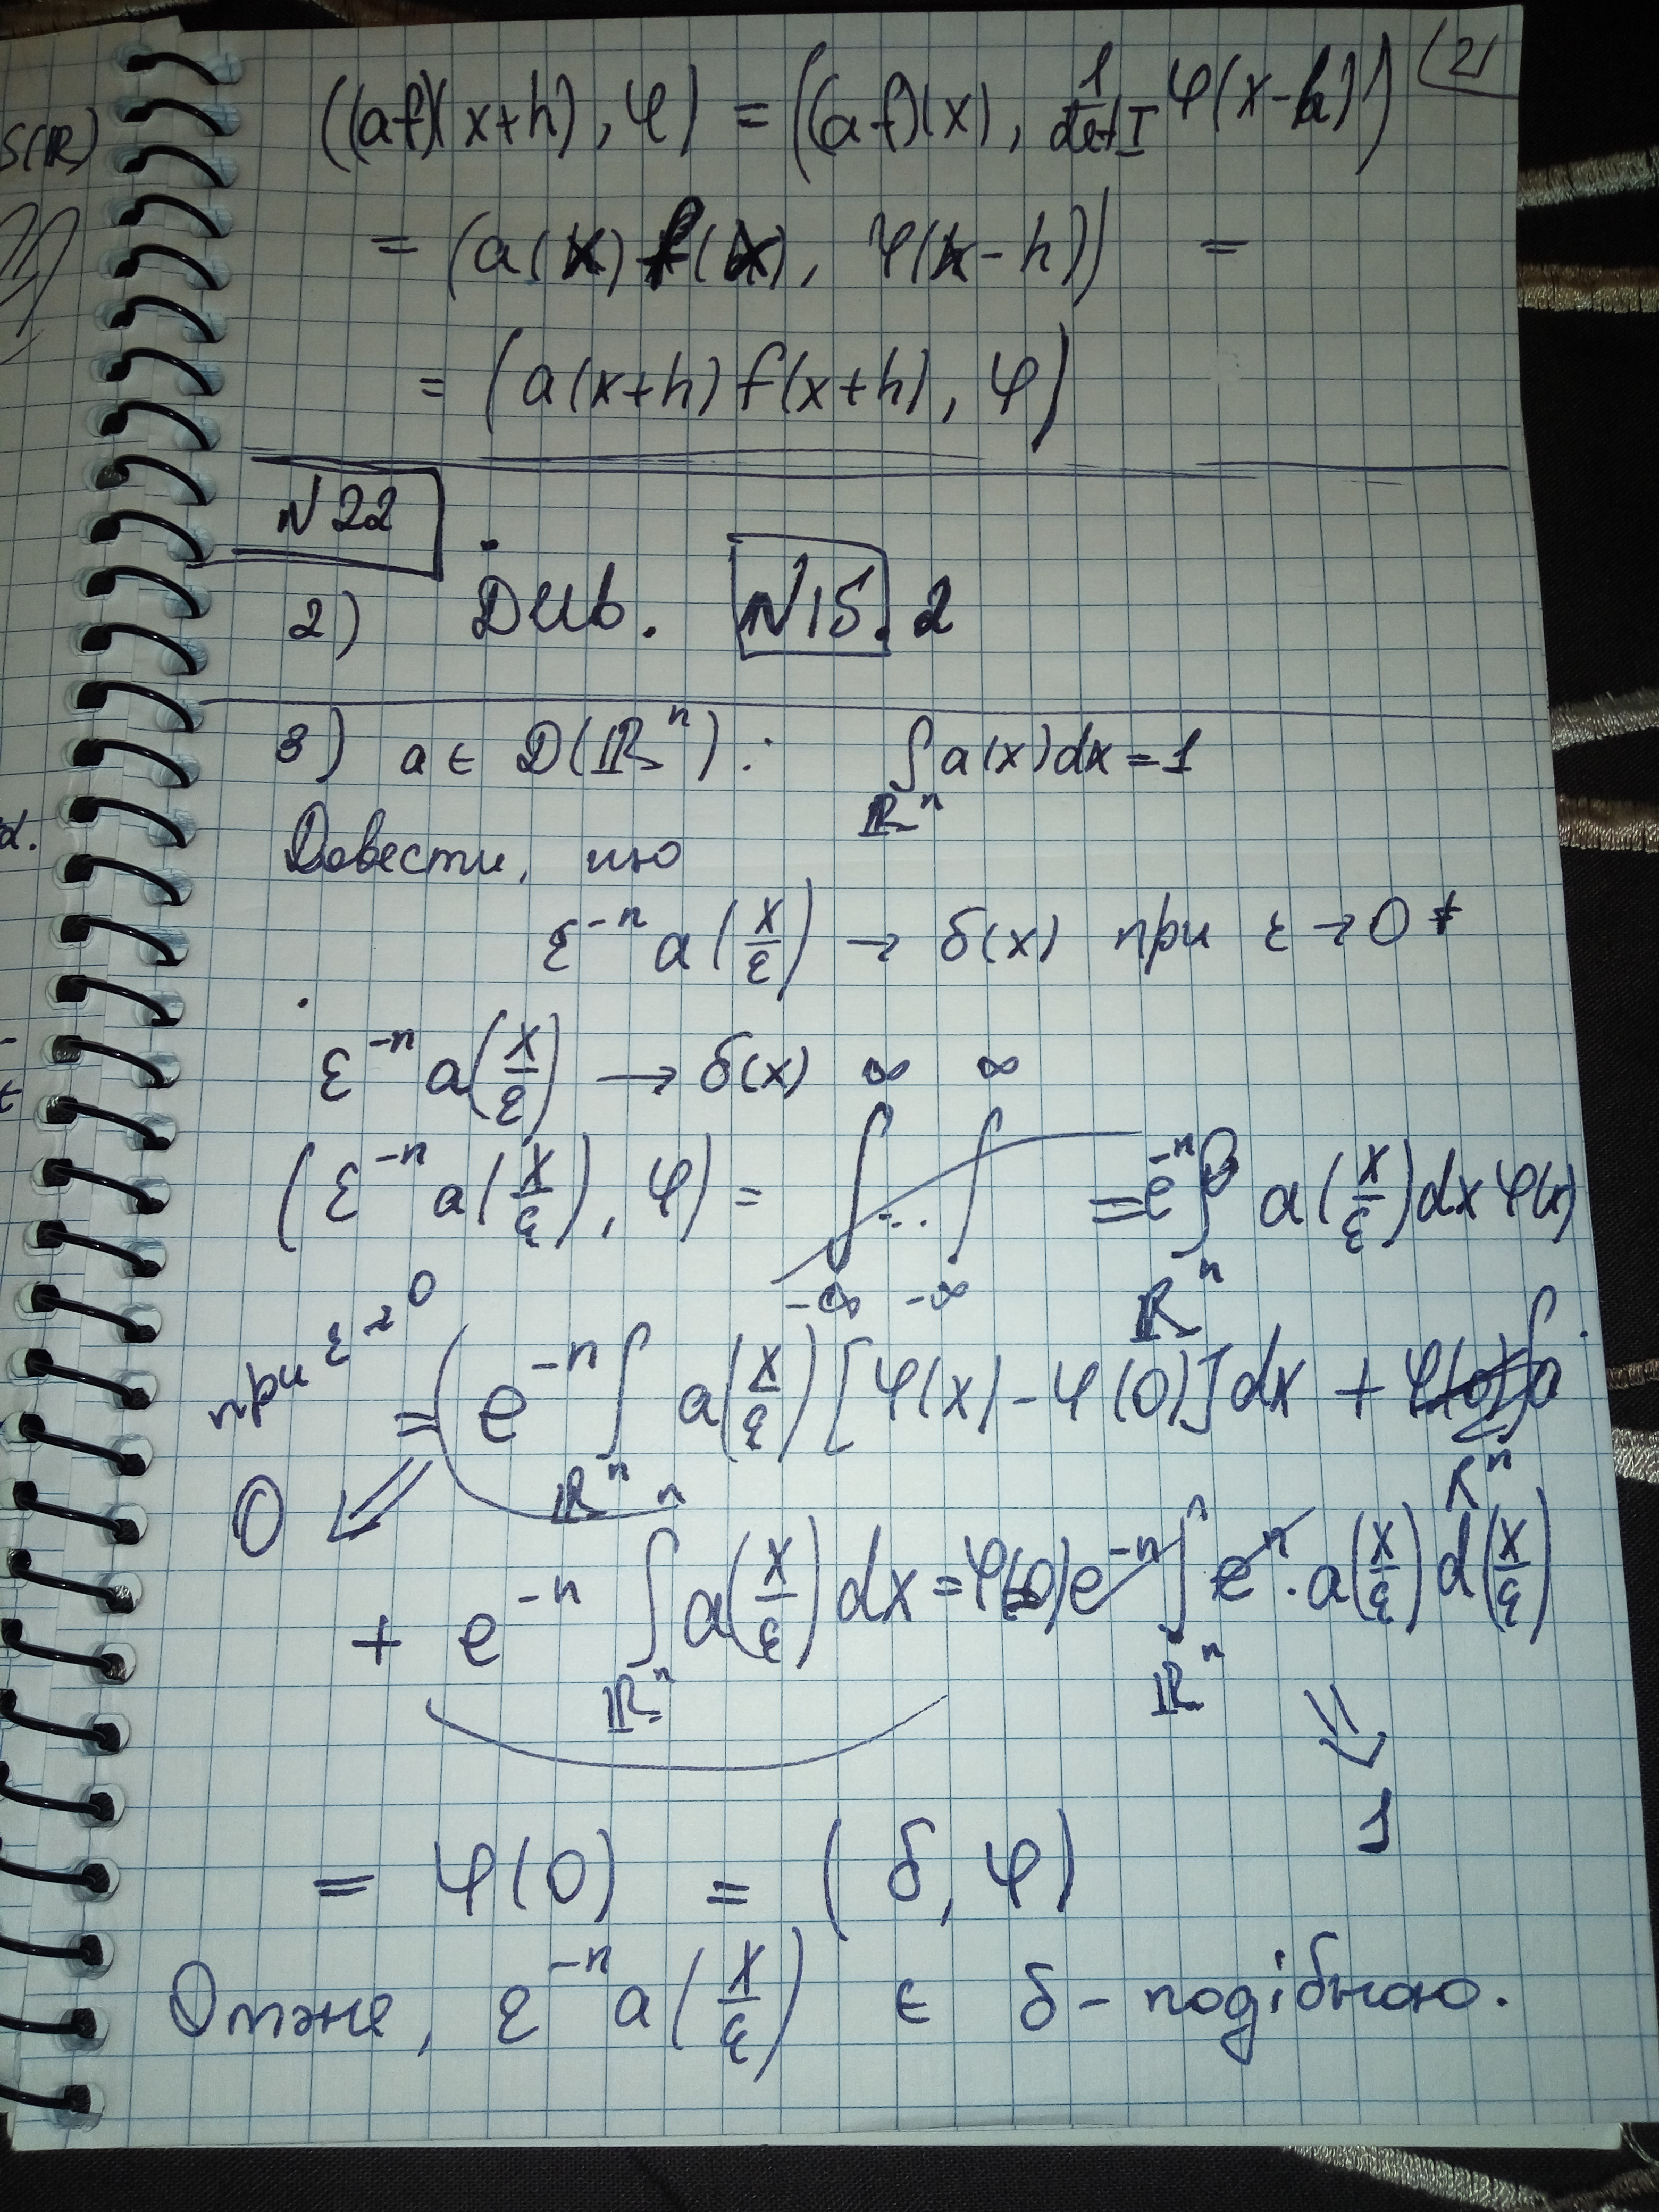 (2)
((af)(x+h), φ) = ((af)(x), 1/det I φ(x-h))
= (a(x) f(x), φ(x-h)) =
= (a(x+h) f(x+h), φ)
N22
2) Див. N15.2
3) a ∈ D(ℝⁿ): ∫_{ℝⁿ} a(x)dx = 1
Довести, що
ε⁻ⁿ a(x/ε) → δ(x) при ε → 0+
ε⁻ⁿ a(x/ε) → δ(x)
(ε⁻ⁿ a(x/ε), φ) = ∫_{-∞}^{∞} ... ∫_{-∞}^{∞} = e⁻ⁿ ∫_{ℝⁿ} a(x/ε)dx φ(x)
при ε → 0
= (e⁻ⁿ ∫_{ℝⁿ} a(x/ε) [φ(x) - φ(0)]dx +
0 ⇐
+ e⁻ⁿ ∫_{ℝⁿ} a(x/ε)dx = φ(0) e⁻ⁿ ∫_{ℝⁿ} eⁿ · a(x/ε) d(x/ε)
⇓
1
= φ(0) = (δ, φ)
Отже, ε⁻ⁿ a(x/ε) є δ-подібною.
S(ℝ)